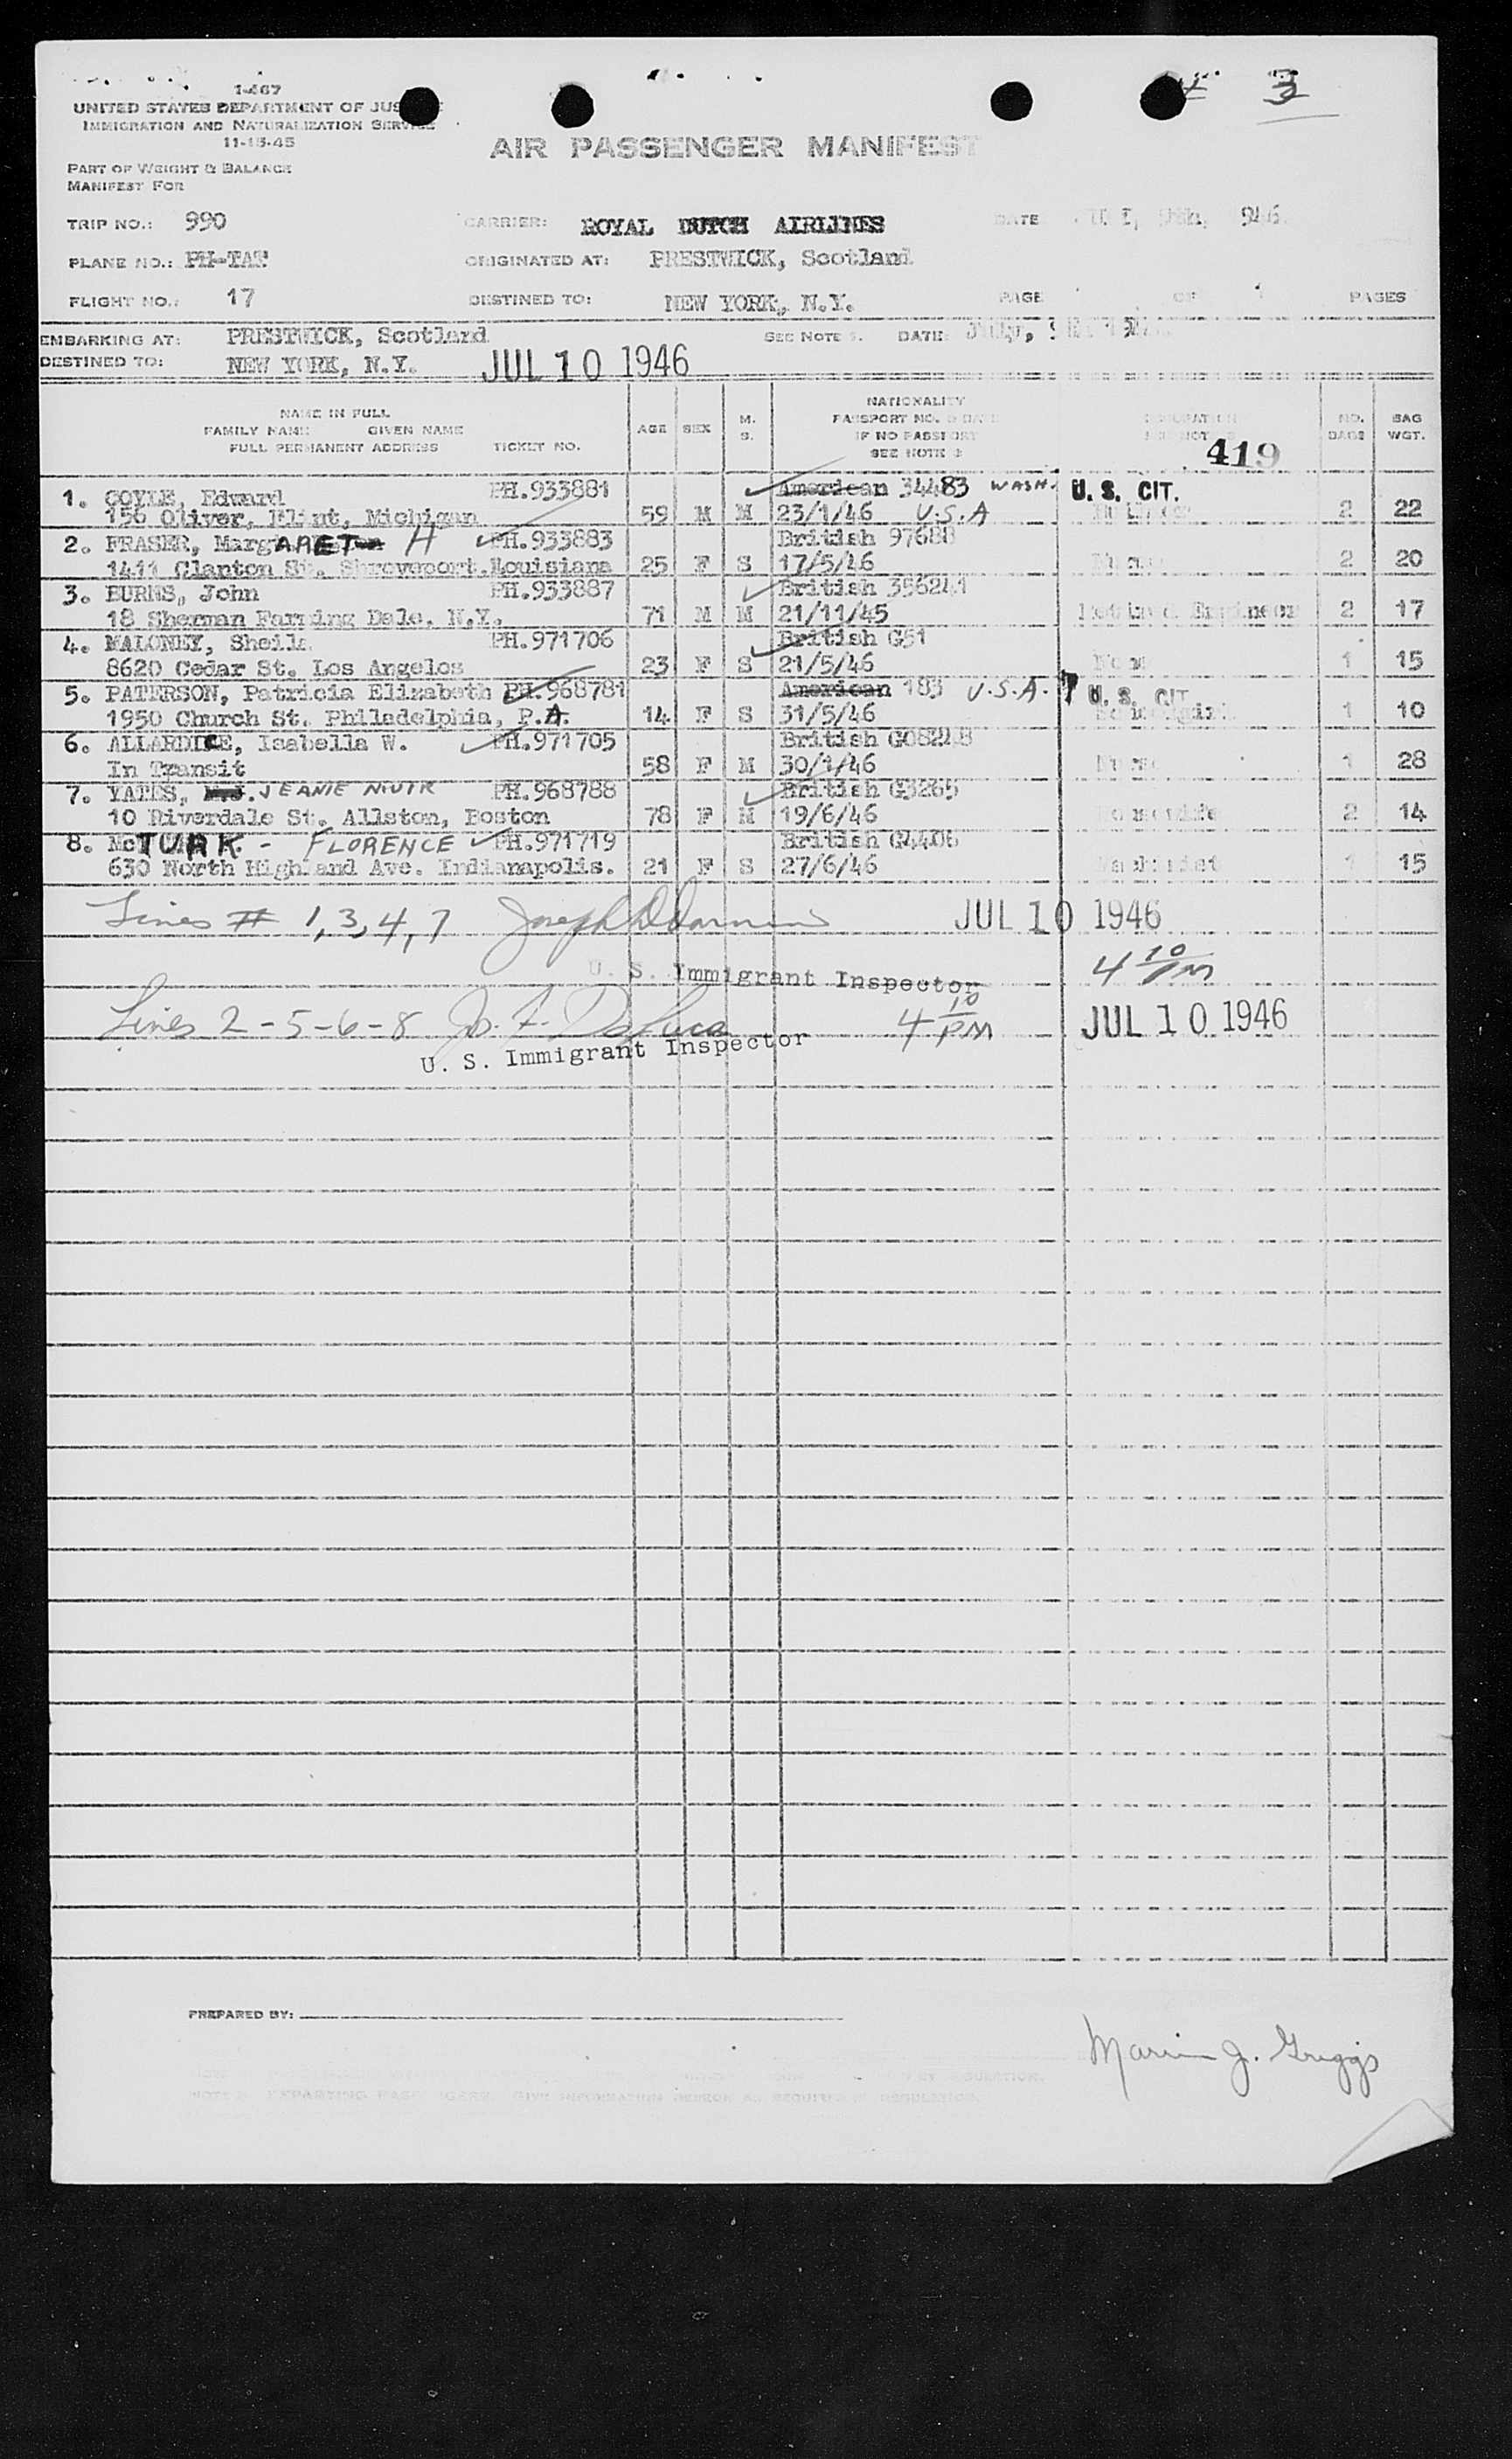 3
1-467
UNITED STATES DEPARTMENT OF
IMMIGRATION AND NATURALIZATION SERVICE
11-15-45
AIR PASSENGER MANIFEST
PART OF WEIGHT & BALANCE
MANIFEST FOR
TRIP NO.: 990 CARRIER: ROYAL DUTCH AIRLINES DATE
PLANE NO.: PH-TAT ORIGINATED AT: PRESTWICK, Scotland
FLIGHT NO.: 17 DESTINED TO: NEW YORK, N.Y. PAGE OF PAGES
EMBARKING AT: PRESTWICK, Scotland SEE NOTE DATE:
DESTINED TO: NEW YORK, N.Y. JUL 10 1946
NAME IN FULL
FAMILY NAME GIVEN NAME
FULL PERMANENT ADDRESS TICKET NO. AGE SEX M. S. NATIONALITY PASSPORT NO. & DATE IF NO PASSPORT SEE NOTE NO. BAGS BAG WGT.
419
1. COYLE, Edward PH.933881 American 34483 WASH. U. S. CIT.
156 Oliver, Flint, Michigan 59 M M 23/1/46 U.S.A 2 22
2. FRASER, MargARET H PH.933883 British 97688
1411 Clanton St. Shreveport. Louisiana 25 F S 17/5/46 2 20
3. BURNS, John PH.933887 British 356241
18 Sherman Farming Dale. N.Y. 71 M M 21/11/45 Engineer 2 17
4. MALONEY, Sheila PH.971706 British G51
8620 Cedar St. Los Angelos 23 F S 21/5/46 1 15
5. PATERSON, Patricia Elizabeth PH.968781 American 183 U.S.A. U. S. CIT
1950 Church St. Philadelphia, P.A. 14 F S 31/5/46 1 10
6. ALLARDICE, Isabella W. PH.971705 British
In Transit 58 F M 30/1/46 1 28
7. YATES, JEANIE MUIR PH.968788 British G3265
10 Riverdale St. Allston, Boston 78 F M 19/6/46 2 14
8. McTURK - FLORENCE PH.971719 British G4406
630 North Highland Ave. Indianapolis. 21 F S 27/6/46 1 15
Lines # 1,3,4,7 JUL 10 1946
U. S. Immigrant Inspector 4 10 PM
Lines 2-5-6-8 4 10 PM JUL 10 1946
U. S. Immigrant Inspector
PREPARED BY:
J. Griggs